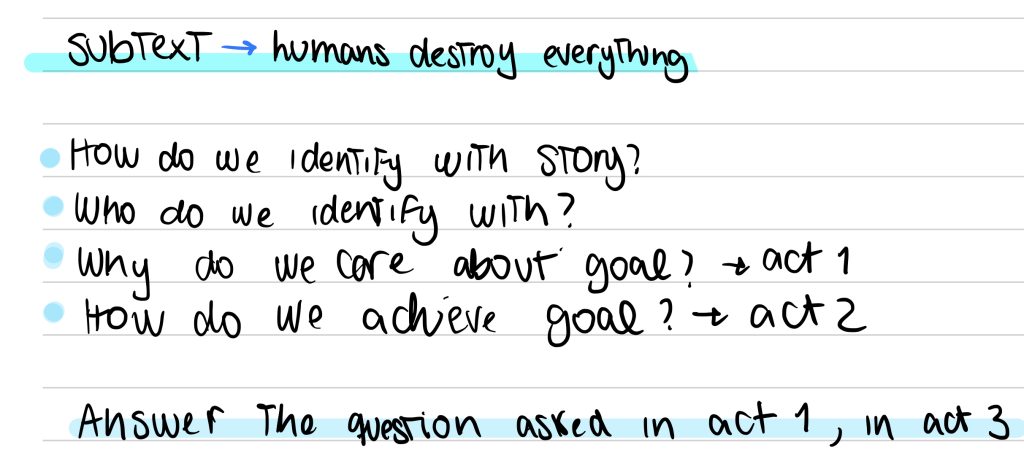 Subtext → humans destroy everything
• How do we identify with story?
• Who do we identify with?
• Why do we care about goal? → act 1
• How do we achieve goal? → act 2
Answer the question asked in act 1, in act 3